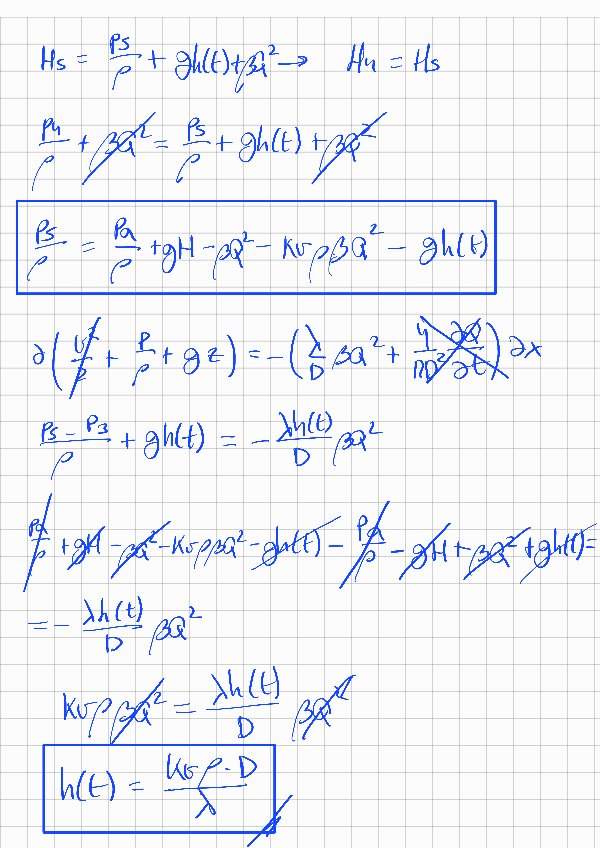 Hs = Ps/ρ + gh(t) + βQ² → H4 = Hs
P4/ρ + βQ² = Ps/ρ + gh(t) + βQ²
Ps/ρ = Pa/ρ + gH - βQ² - Kσρ βQ² - gh(t)
∂(U²/2 + P/ρ + gz) = -(λ/D βQ² + 4/ΠD² ∂Q/∂t) ∂x
Ps - P3/ρ + gh(t) = - λh(t)/D βQ²
Pa/ρ + gH - βQ² - Kσρ βQ² - gh(t) - Pa/ρ - gH + βQ² + gh(t) =
= - λh(t)/D βQ²
Kσρ βQ² = λh(t)/D βQ²
h(t) = Kσρ · D/λ